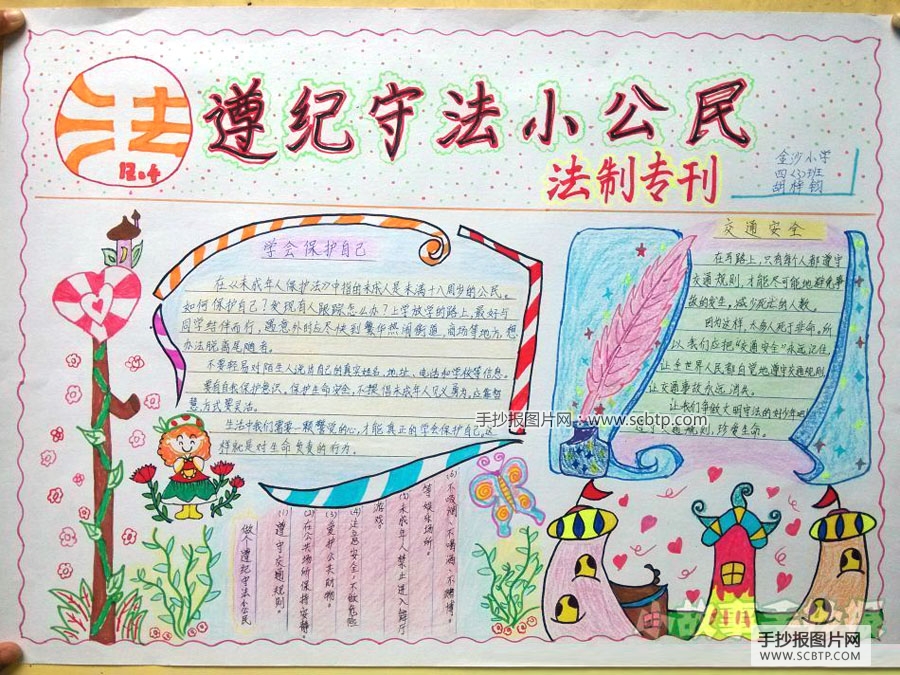 法
12.4
遵纪守法小公民
法制专刊
金沙小学
四(3)班
学会保护自己
在《未成年人保护法》中指的未成人是未满十八周岁的公民。
如何保护自己?发现有人跟踪怎么办?上学放学的路上,最好与
同学结伴而行,遇意外时应尽快到繁华热闹街道、商场等地方,想
办法脱离尾随者。
不要轻易对陌生人说出自己的真实姓名、地址、电话和学校等信息。
要有自我保护意识,保护生命安全,不提倡未成年人见义勇为,应靠智
慧,方式要灵活。
生活中我们需要一颗警觉的心,才能真正的学会保护自己,这
样就是对生命负责的行为。
交通安全
在马路上,只有每个人都遵守
交通规则,才能尽可能地避免事
故的发生,减少死亡的人数。
因为这样,太多人死于非命。所
以我们应把“交通安全”永远记住,
让全世界人民都自觉地遵守交通规则,
让交通事故永远消失。
让我们争做文明守法的好少年
规则,珍爱生命。
手抄报图片网:www.scbtp.com
做个遵纪守法小公民
(1)遵守交通规则。
(2)在公共场所保持安静
(3)爱护公共财物。
(4)注意安全,不做危险
游戏。
(5)未成年人禁止进入舞厅
等娱乐场所。
(6)不吸烟、不喝酒、不赌博。
手抄报图片网
WWW.SCBTP.COM